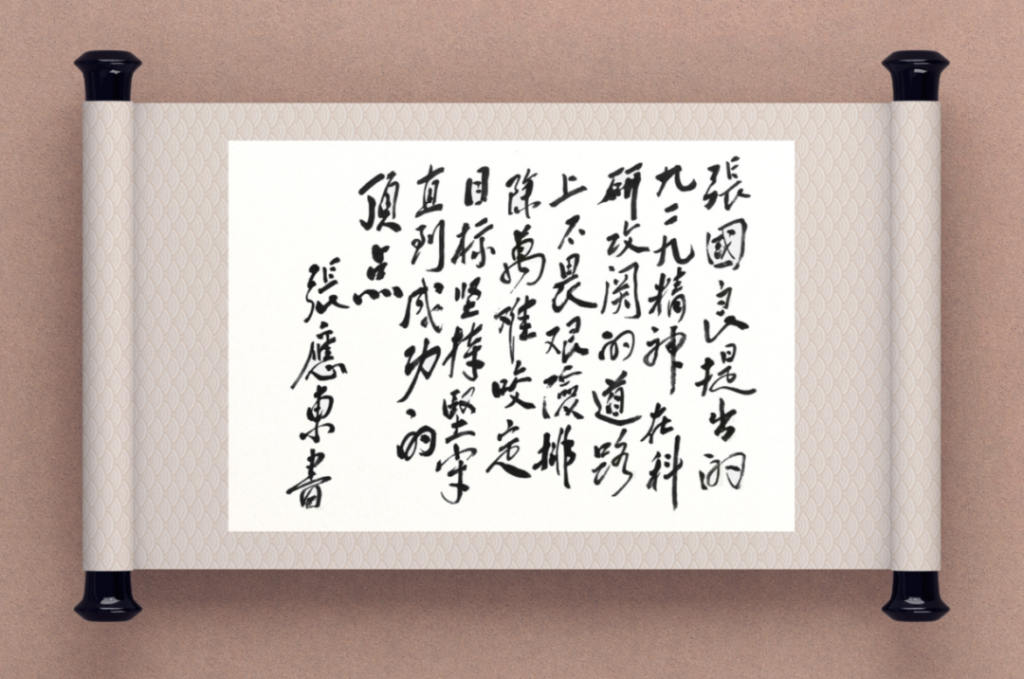 張國良提出的
九二九精神在科
研攻関的道路
上不畏艰險排
除萬难咬定
目标坚持堅守
直到成功的
頂点
張應東書